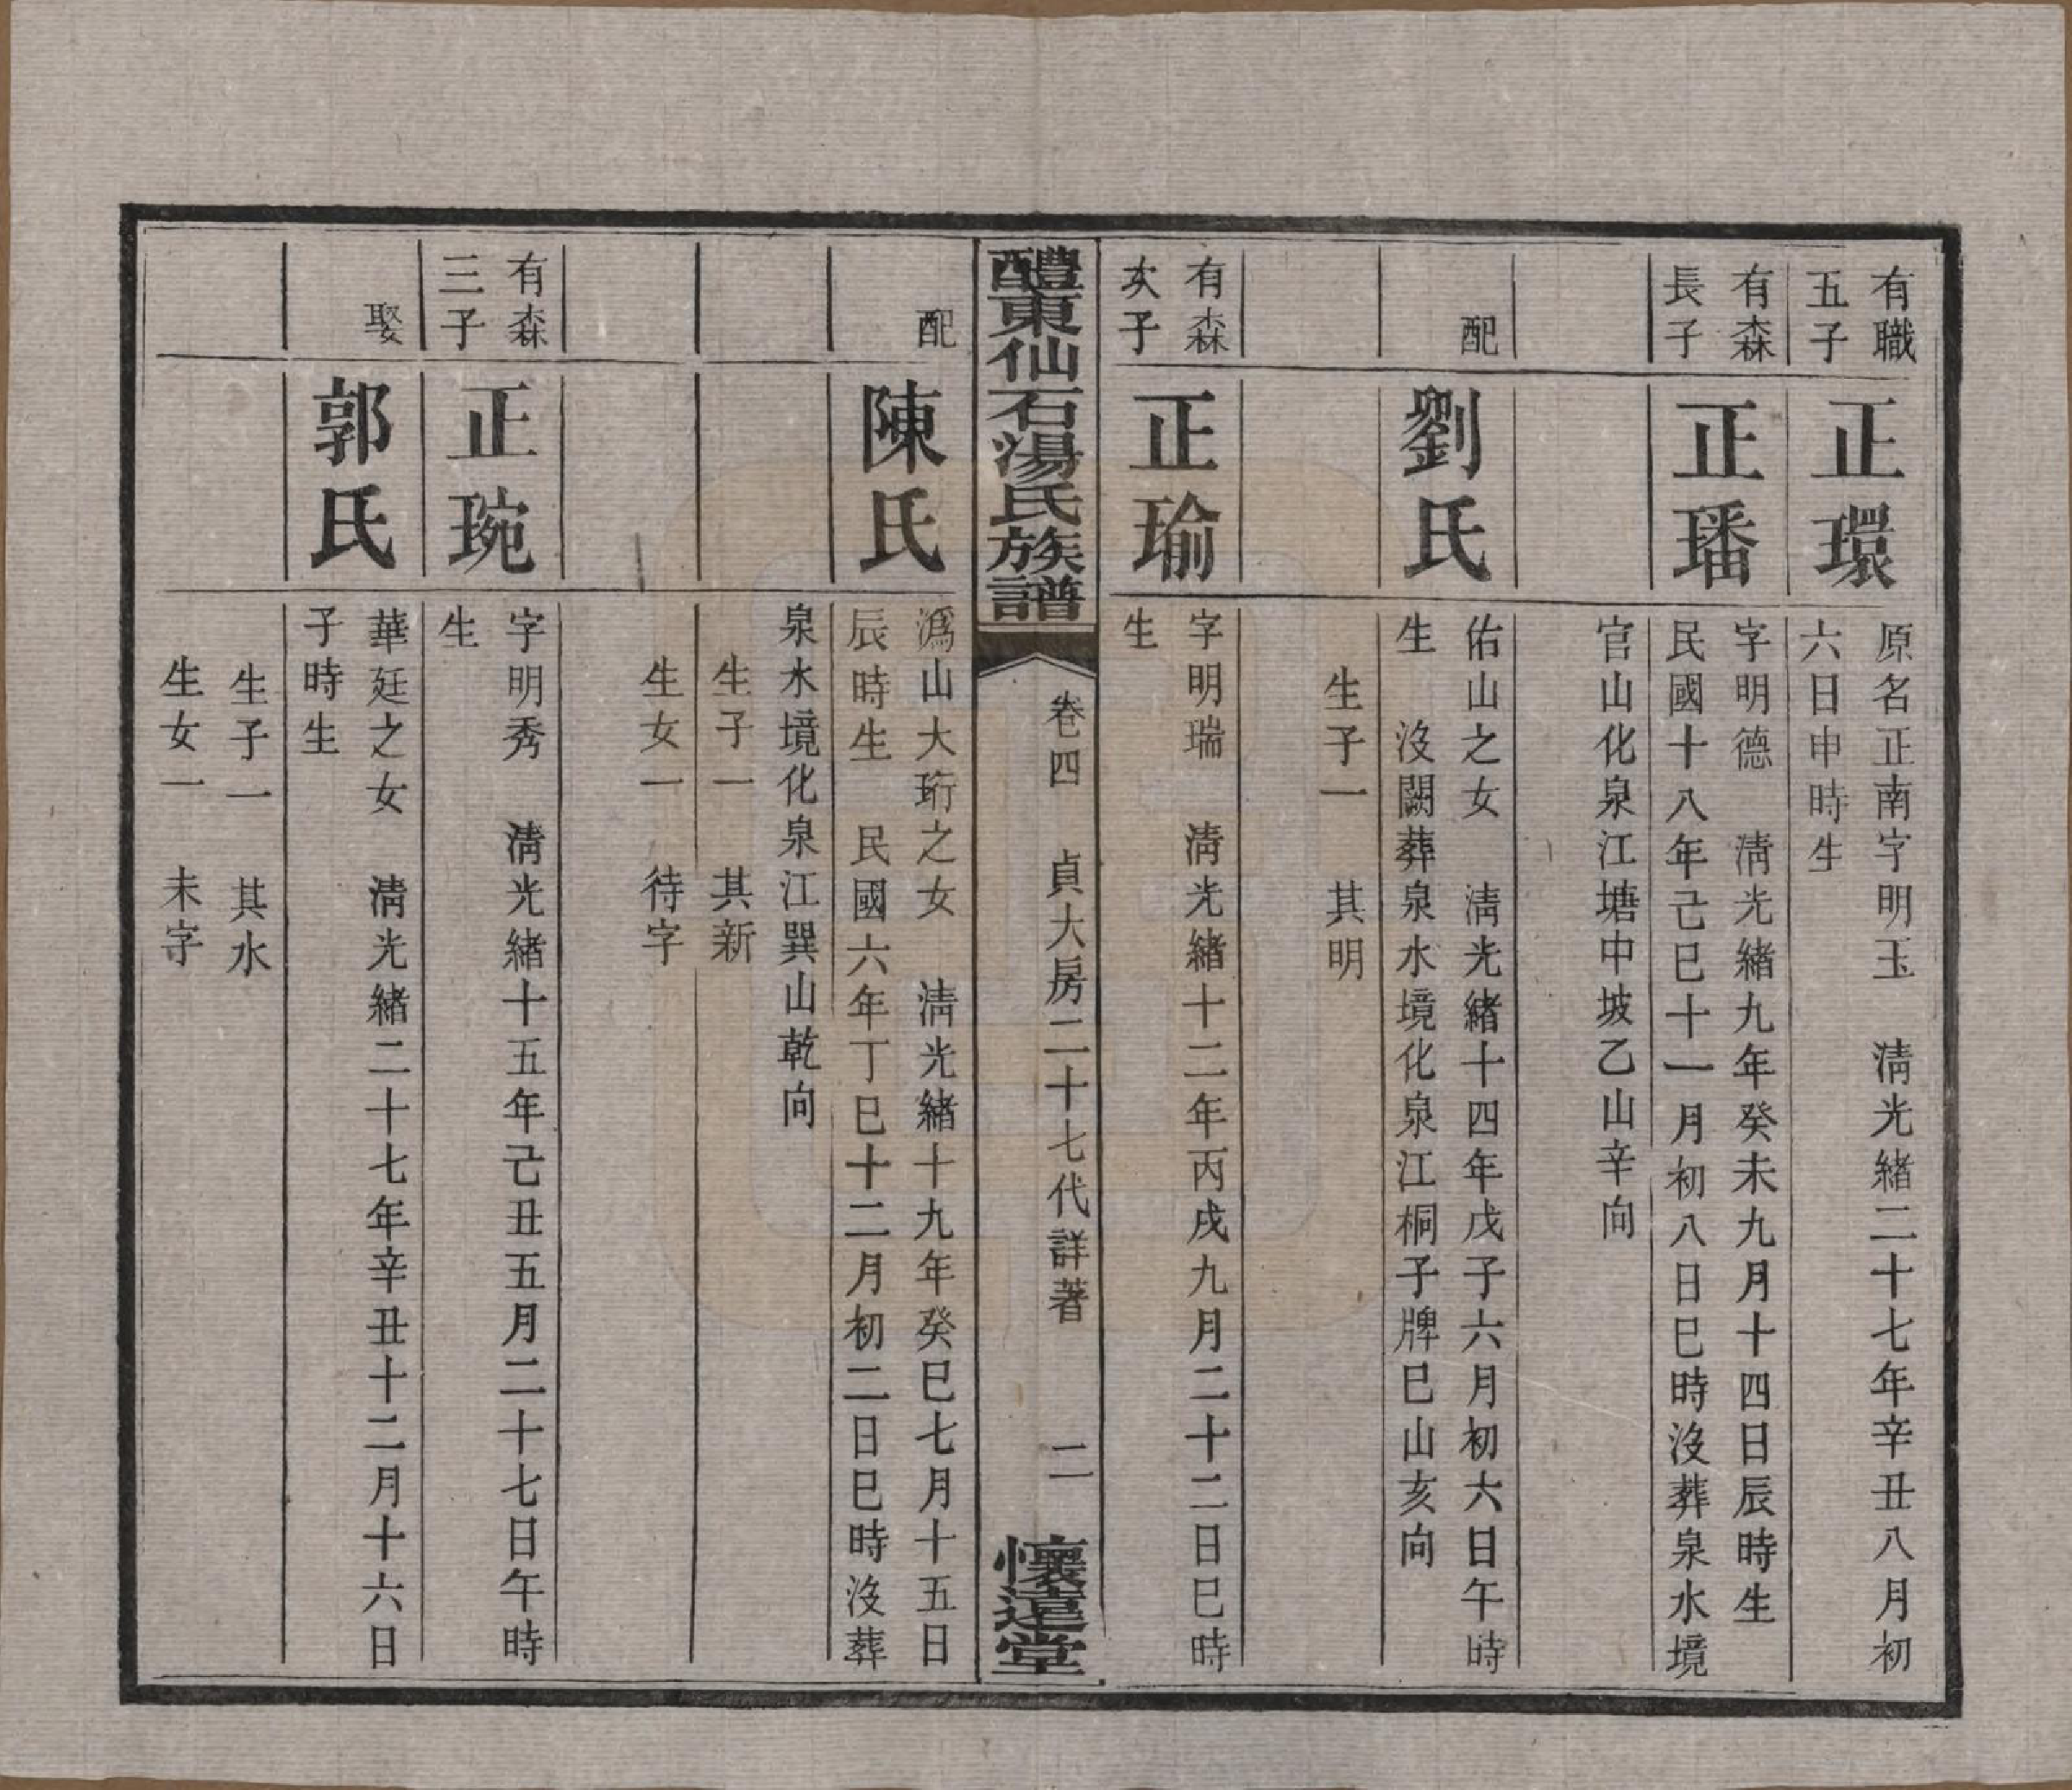 有職
五子
正環
原名正南字明玉　淸光緒二十七年辛丑八月初
六日申時生
有森
長子
正璠
字明德　淸光緒九年癸未九月十四日辰時生
民國十八年己巳十一月初八日巳時沒葬泉水境
官山化泉江塘中坡乙山辛向
配
劉氏
佑山之女　淸光緒十四年戊子六月初六日午時
生　沒闕葬泉水境化泉江桐子牌巳山亥向
生子一　其明
有森
次子
正瑜
字明瑞　淸光緒十二年丙戌九月二十二日巳時
生
醴東仙石湯氏族譜
卷四　貞大房二十七代詳著　二
懷遠堂
配
陳氏
溈山大珩之女　淸光緒十九年癸巳七月十五日
辰時生　民國六年丁巳十二月初二日巳時沒葬
泉水境化泉江巽山乾向
生子一　其新
生女一　待字
有森
三子
正琬
字明秀　淸光緒十五年己丑五月二十七日午時
生
娶
郭氏
華廷之女　淸光緒二十七年辛丑十二月十六日
子時生
生子一　其水
生女一　未字